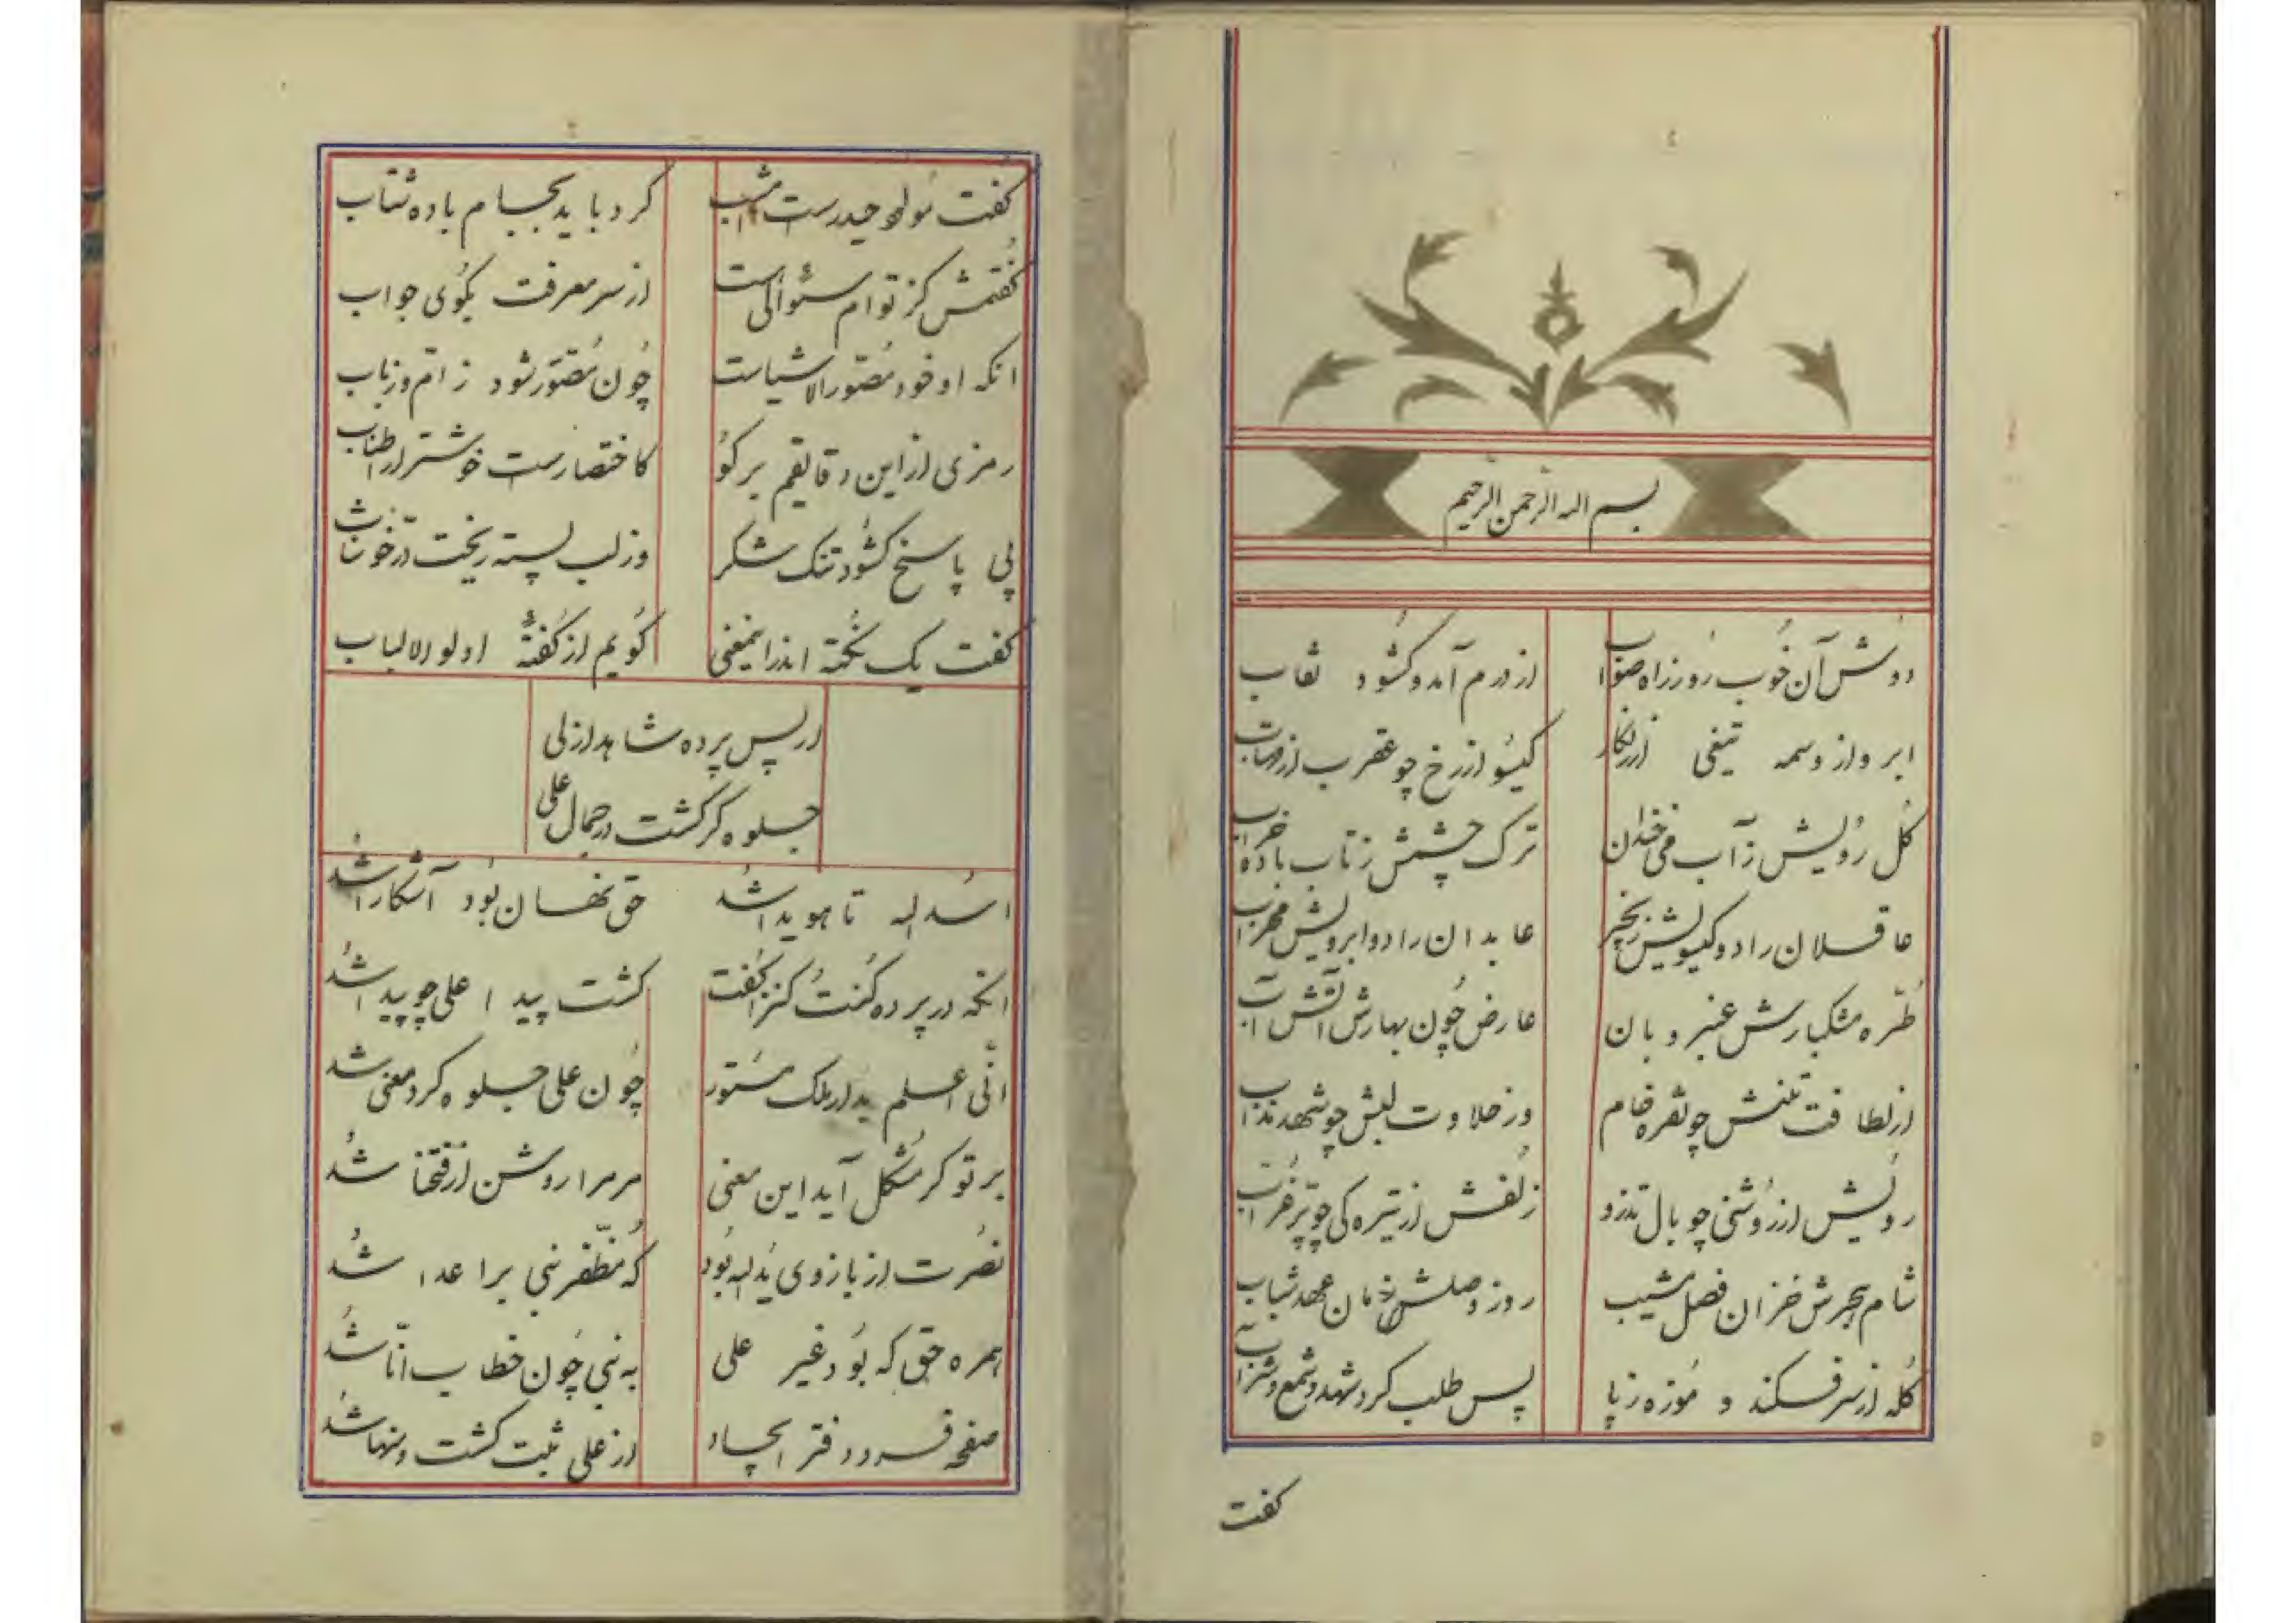 بسم الله الرحمن الرحیم
دوش آن خوب رو ز راه صواب از درم آمد و کشود نقاب
ابرو از وسمه تیغی از زنکار کیسو از رخ چو عقرب از
کل رویش ز آب می خندان ترک چشمش ز تاب باده خراب
عاقلان را دو کیسویش زنجیر عابدان را دو ابرویش محراب
طره مشکبارش عنبر و بان عارض چون بهارش آتش آب
از لطافت تنش چو نقره خام وز حلاوت لبش چو شهد مذاب
رویش از روشنی چو بال تذرو زلفش از تیره کی چو پر غراب
شام هجرش خزان فصل شیب روز وصلش زمان عهد شباب
کله از سر فکند و موزه ز پا پس طلب کرد شهد و شمع و شراب
کفت
کفت مولود حیدرست امشب کرد باید بجام باده شتاب
کفتمش کز توام سئوالی است از سر معرفت بکوی جواب
انکه او خود مصور الاشیاست چون مصور شود ز ام و ز باب
رمزی از این دقایقم بر کو کاختصارست خوشتر از اطناب
پی پاسخ کشود تنک شکر وز لب پسته ریخت در خوشاب
کفت یک نکته اندرانمعنی کویم از کفته اولو الالباب
از پس پرده شاهد ازلی
جلوه کر کشت در جمال علی
اسد الله تا هویدا شد حق نهان بود آشکارا شد
انکه در پرده کنت کنزا کفت کشت پیدا علی چو پیدا شد
انی اعلم بد از ملک مستور چون علی جلوه کرد معنی شد
بر تو کر مشکل آید این معنی مر مرا روشن از فتحنا شد
نصرت از بازوی ید الله بود که مظفر نبی بر اعدا شد
همره حق که بود غیر علی به نبی چون خطاب انا شد
صفحه فرد دفتر ایجاد از علی ثبت کشت و منها شد